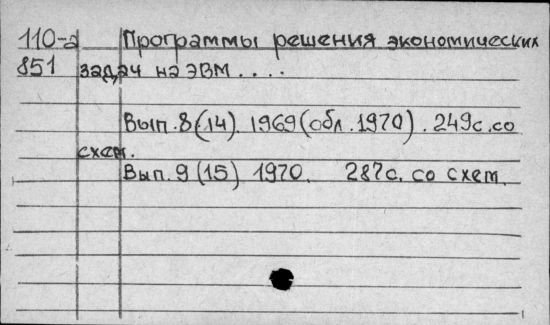 110-а Программы решения экономических
851 задач на ЭВМ....
Вып. 8(14). 1969 (обл. 1970). 249с. со
схем.
Вып. 9 (15) 1970. 287с. со схем.